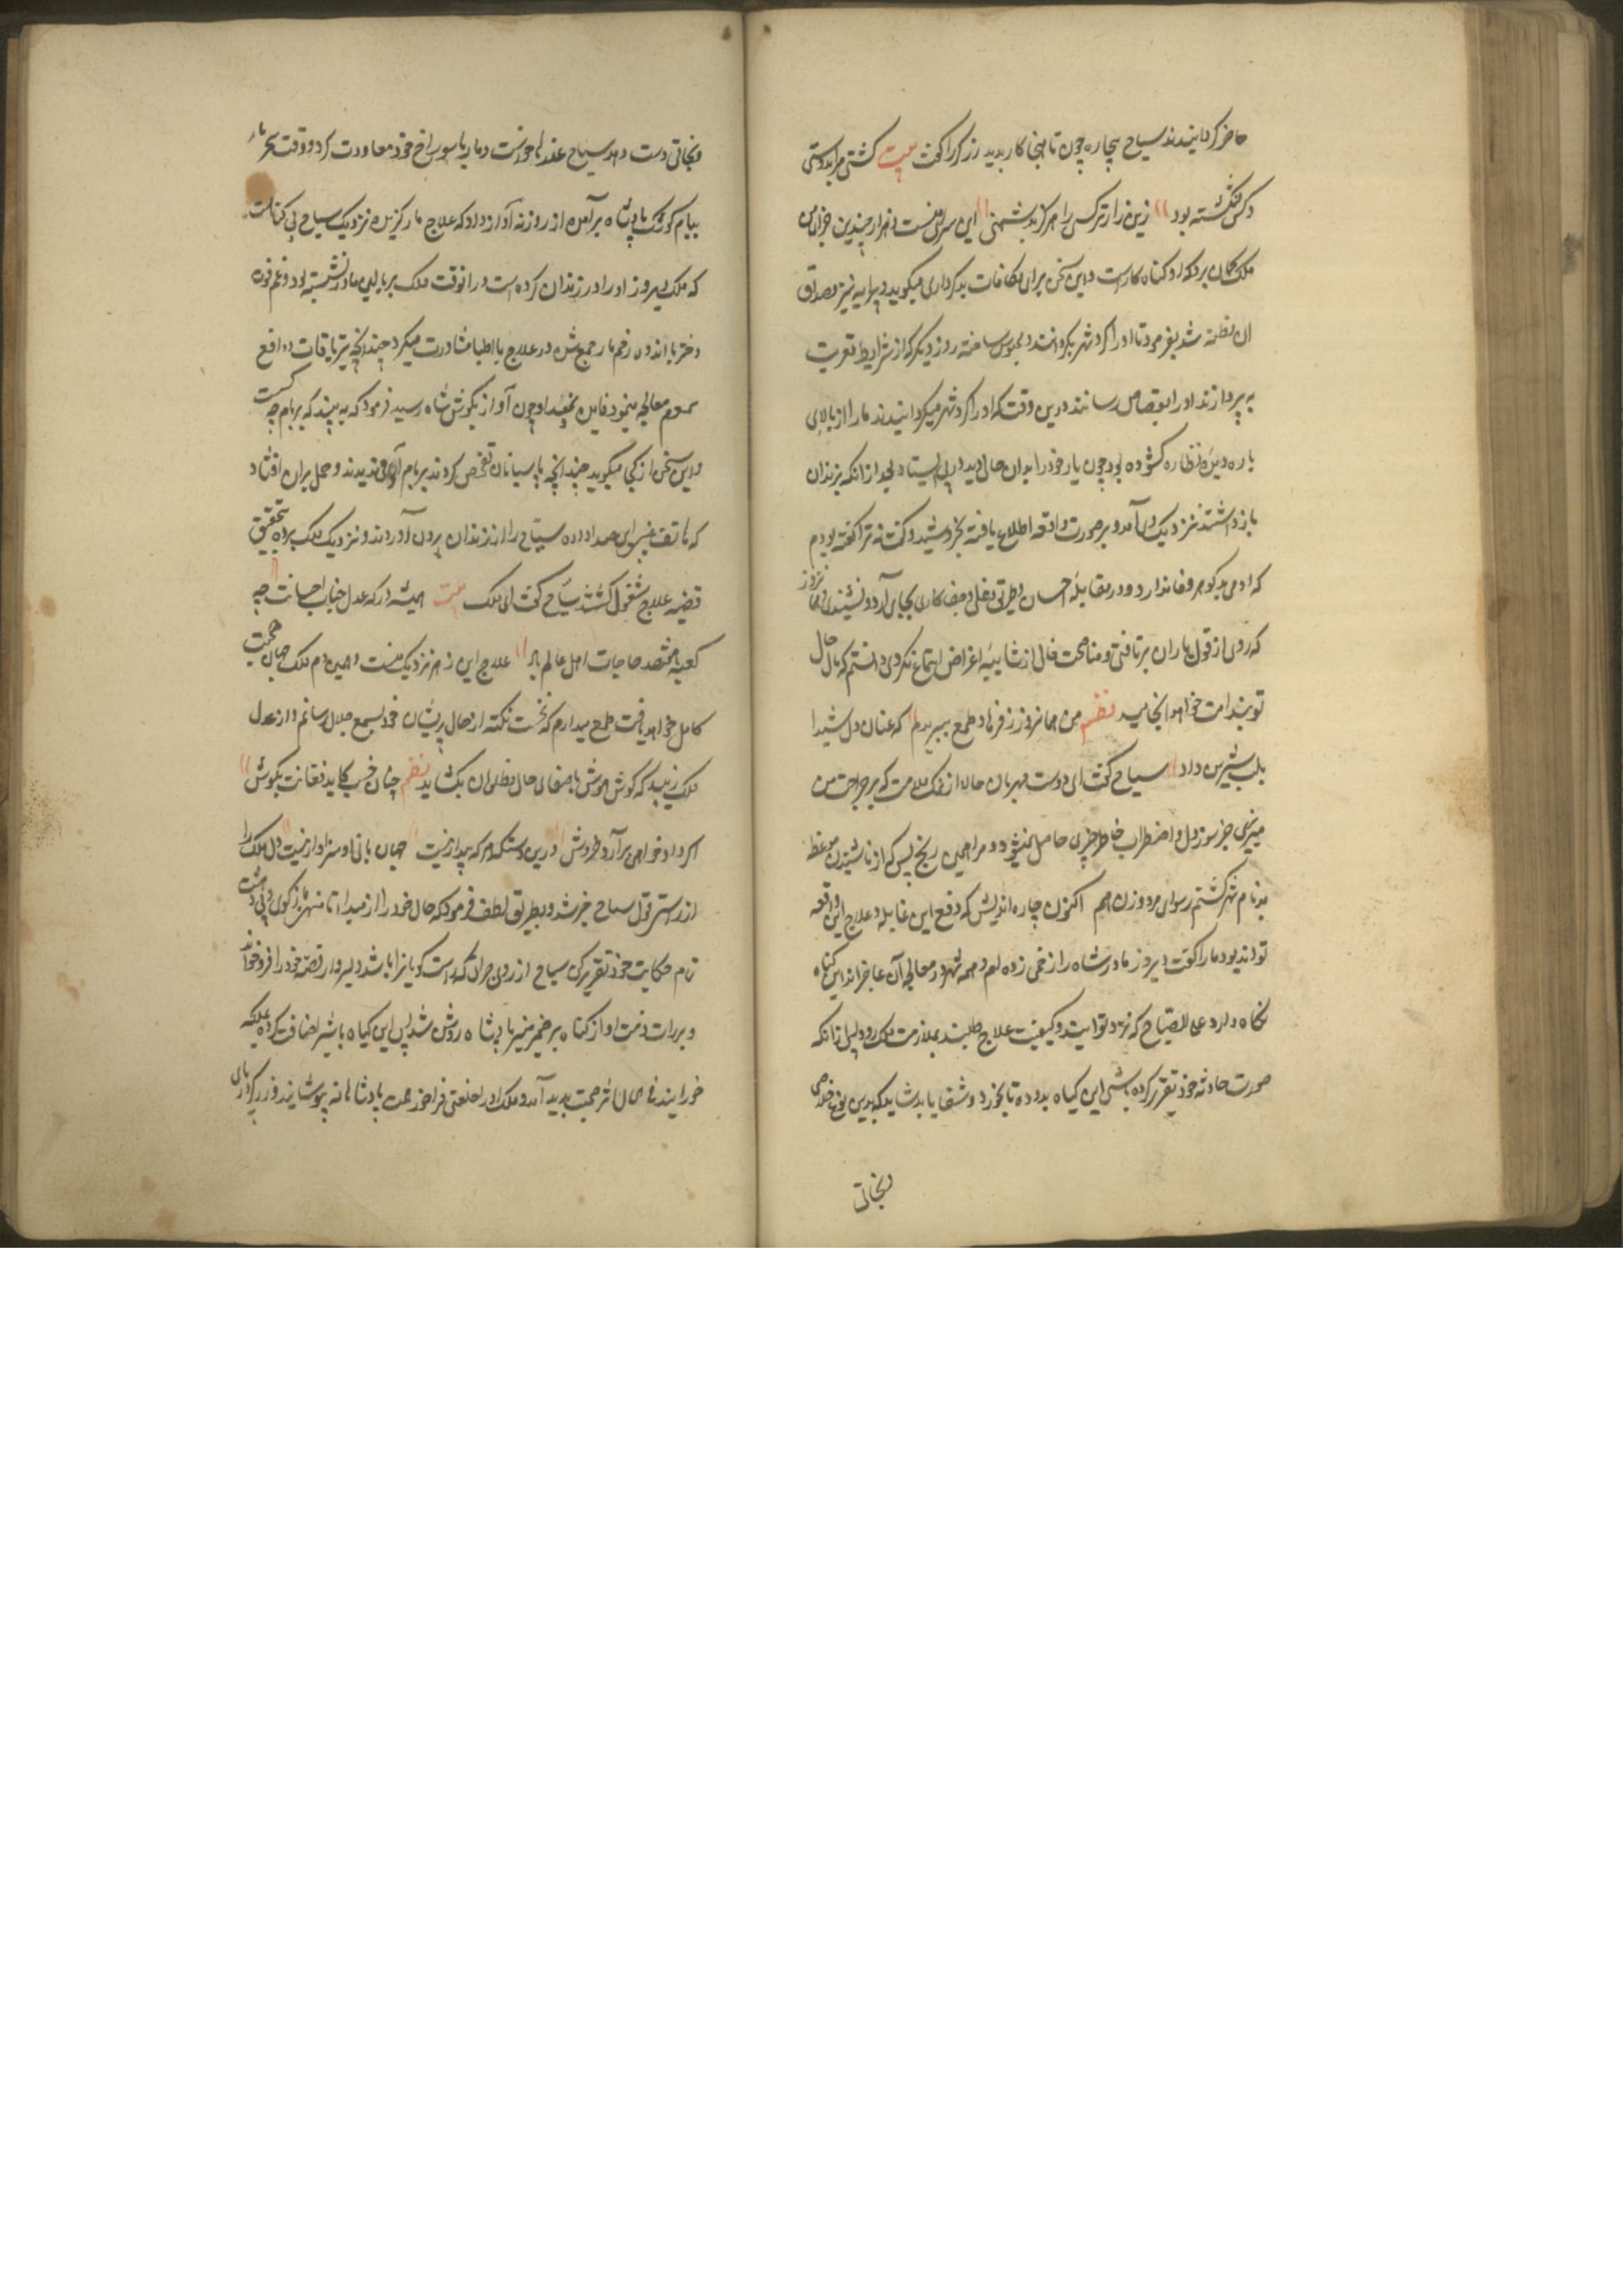 حاضر کردانیدند سیاح بیچاره چون تا اینجا کار بدید زرکر را کفت بیت کشتی مرا بدوستی
و کس نکشته بود زین زارتر کسی را هرکز بدشمنی این سزای منست و هزار چندین جزای من
ملک کمان برد که او کناه کار است و این سخن برای مکافات بدکرداری میکوید و پیرایه نیز مصداق
ان مظنه شد بفرمود تا او را کرد شهر بکردانند و محبوس ساخته روز دیکر که از شرایط تعزیت
به پردازند او را بقصاص رسانند درین وقت که او را کرد شهر میکردانیدند مار از بالای
باره دیده نظاره کشوده بود چون یار خود را بدان حال دید در پی ایستاد بعد از انکه بزندان
باز داشتند نزدیک وی آمد و بر صورت واقعه اطلاع یافته بخروشید و کفت نه ترا کفته بودم
که ادمی بد کوهر وفا ندارد و در مقابله احسان طریق دغلی و جفا کاری بجای آرد و نشنیدی و همانروز
که روی از قول یاران برتافتی و مناصحت خالی از شایبه اغراض استماع نکردی دانستم که مال حال
تو بندامت خواهد انجامید نظم من همانروز ز فرهاد طمع ببریدم که عنان دل شیدا
بلب شیرین داد سیاح کفت ای دوست مهربان حالا از نمک ملامت که بر جراحت من
میریزی جز سوز دل و اضطراب خاطر چیزی حاصل نمیشود و مرا همین رنج بس که از ناشنیدن موعظ
بدنام شهر کشتم رسوای مرد و زن هم اکنون چاره اندیش که دفع این غایله و علاج این واقعه
تواند بود مار کفت دیروز مادر شاه را زخمی زده ام و همه شهر در معالجه آن عاجزاند این کیاه
نکاه دار و علی الصباح که نزد تو آیند و کیفیت علاج طلبند بملازمت ملک رو و پس از انکه
صورت حادثه خود تقریر کرده باشی این کیاه بدو ده تا بخورد و شفا یابد شاید که بدین نوع خلاصی
و نجاتی
و نجاتی دست دهد سیاح عذرها خواست و مار با سوراخ خود معاودت کرد و وقت سحر مار
ببام کوشک پادشاه برآمده از روزنه آواز داد که علاج مار کزیده نزدیک سیاح بی کناهست
که ملک دیروز او را در زندان کرده است در انوقت ملک بر بالین مادر نشسته بود و غم فزون
معالجه مینمود فایده نمیداد چون آواز بکوش شاه رسید فرمود که به بینید که بر بام چه کسیست
و این سخن از کجا میکوید چندانچه پاسبانان تفحص کردند بر بام آدمی ندیدند و حمل بران افتاد
که هاتف غیبی صدا داده سیاح را از زندان بیرون آوردند و نزدیک ملک برده بتحقیق
قضیه علاج مشغول کشتند سیاح کفت ای ملک بیت همیشه در که عدل جناب احسانت چه
کعبه مقصد حاجات اهل عالم باد علاج این زهر نزدیک منست و همین دم ملکه جهان صحت
کامل خواهد یافت طمع میدارم که نخست نکته از حال پریشان خود بسمع جلال رسانم و از عدل
ملک زیبد که کوش هوش باصغای حال مظلومان بکشاید نظم چنان خسب کاید فغانت بکوش
اکر داد خواهی برآرد خروش درین ستمکر که بیداد نیست جهان بانی او سزاوار نیست دل ملک را
از راستی قول سیاح خبر شد و بطریق لطف فرمود که حال خود را از مبدا تا منتها باز کوی و بی دهشت
تمام حکایت خود تقریر کن سیاح از روی جرات که راست کویانرا باشد دلیروار قصه خود را فرو خواند
و برات ذمت او از کناه بر ضمیر منیر پادشاه روشن شد پس این کیاه با شیر اضافت کرده بملکه
خورانیدند فی الحال اثر صحت پدید آمد و ملک او را خلعتی فراخور همت پادشاهانه پوشانیدند و زرکر را بپای